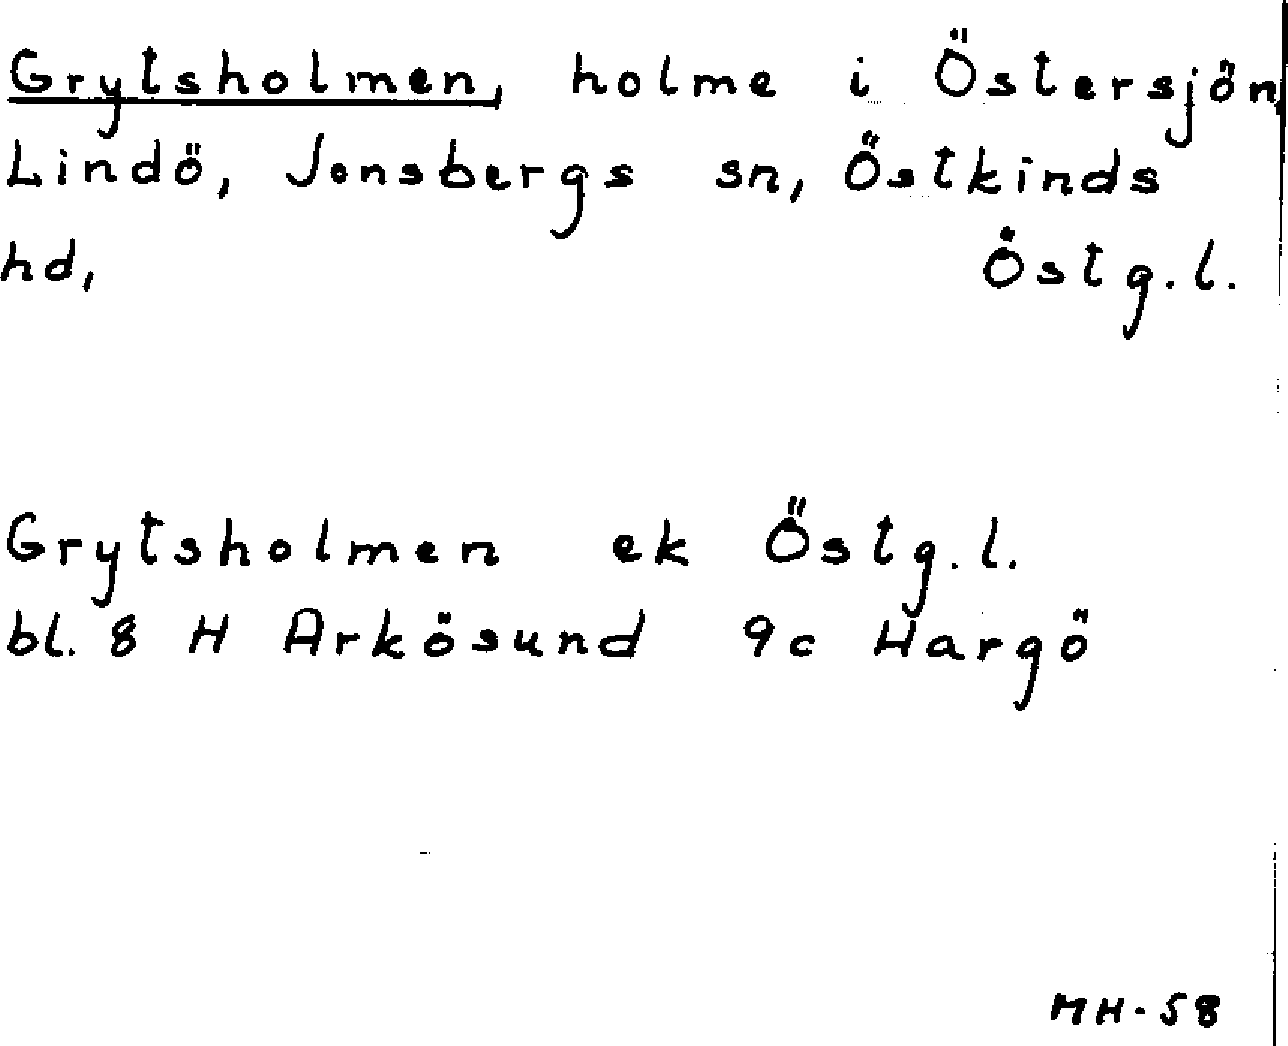 Grytsholmen, holme i Östersjön,
Lindö, Jonsbergs sn, Östkinds
hd, Östg.l.
Grytsholmen ek Östg.l.
bl. 8 H Arkösund 9c Hargö
MH-58